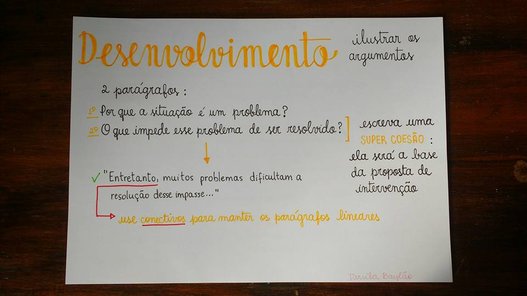 Desenvolvimento
ilustrar os
argumentos
2 parágrafos:
1º Por que a situação é um problema?
2º O que impede esse problema de ser resolvido?
escreva uma
SUPER COESÃO:
ela será a base
da proposta de
intervenção
"Entretanto, muitos problemas dificultam a
resolução desse impasse..."
use conectivos para manter os parágrafos lineares